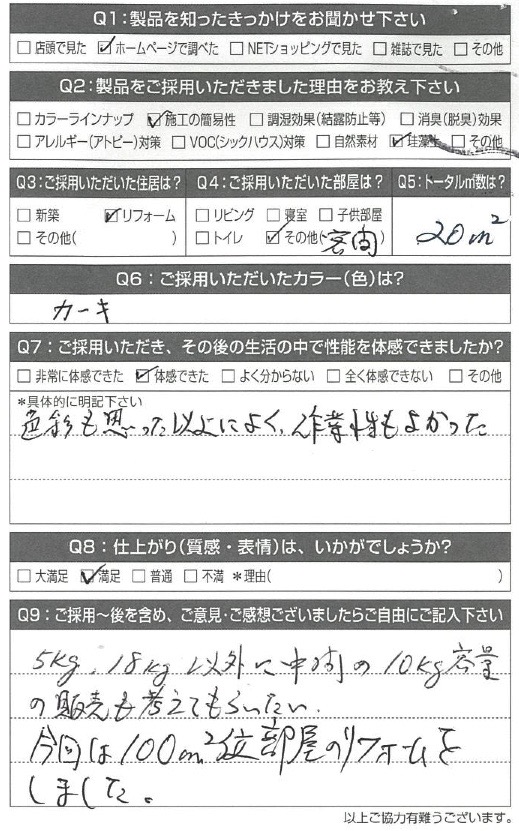 Q1：製品を知ったきっかけをお聞かせ下さい
□ 店頭で見た ☑ ホームページで調べた □ NETショッピングで見た □ 雑誌で見た □ その他
Q2：製品をご採用いただきました理由をお教え下さい
□ カラーラインナップ ☑ 施工の簡易性 □ 調湿効果（結露防止等） □ 消臭（脱臭）効果
□ アレルギー（アトピー）対策 □ VOC（シックハウス）対策 □ 自然素材 ☑ 珪藻土 □ その他
Q3：ご採用いただいた住居は？ Q4：ご採用いただいた部屋は？ Q5：トータル㎡数は？
□ 新築 ☑ リフォーム □ リビング □ 寝室 □ 子供部屋
□ その他（ ） □ トイレ ☑ その他（客間） 20m²
Q6：ご採用いただいたカラー（色）は？
カーキ
Q7：ご採用いただき、その後の生活の中で性能を体感できましたか？
□ 非常に体感できた ☑ 体感できた □ よく分からない □ 全く体感できない □ その他
＊具体的に明記下さい
色彩も思った以上によく、作業性もよかった
Q8：仕上がり（質感・表情）は、いかがでしょうか？
□ 大満足 ☑ 満足 □ 普通 □ 不満 ＊理由（ ）
Q9：ご採用～後を含め、ご意見・ご感想ございましたらご自由にご記入下さい
5kg、18kg 以外に中間の10kg容量
の販売も考えてもらいたい。
今回は100m²位部屋のリフォームを
しました。
以上ご協力有難うございます。